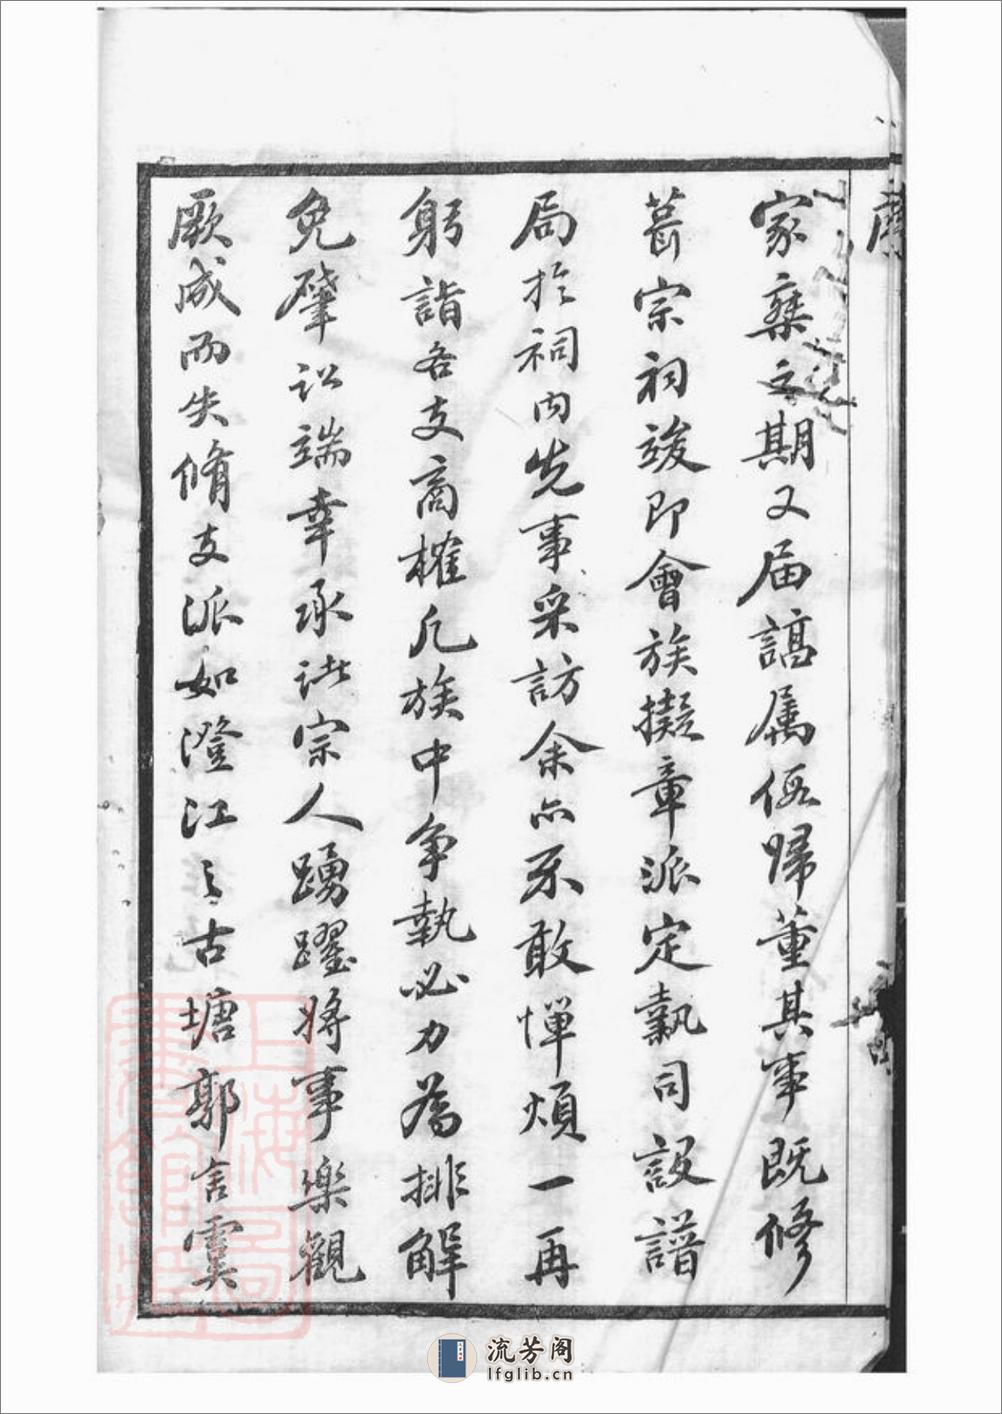 序
家乘之期又屆謌属伍歸董其事既修
葺宗祠竣即會族擬章派定執司設譜
局於祠内先事采訪余亦不敢憚煩一再
躬詣各支商榷凡族中争執必力為排解
免肇訟端幸承诸宗人踴躍將事樂觀
厥成而失脩支派如澄江之古塘郭言雲
上海圖書館藏
流芳阁
lfglib.cn